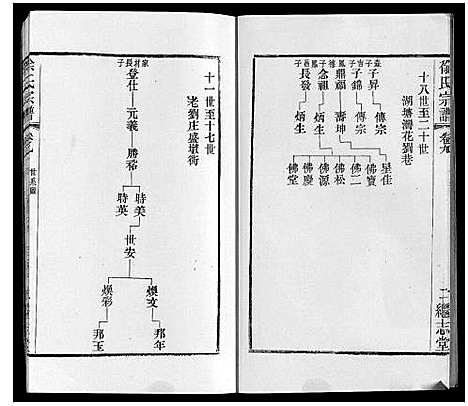 徐氏宗譜
卷九
二 繼志堂
十八世至二十世
湖塘灣花劉巷
子昇 傳宗
子錦 傳宗
鼎福 壽坤 星佳 佛寶 佛二 佛松
念祖 炳生 佛源
長發 炳生 佛慶 佛堂
十一世至十七世
老劉庄盛墩街
長子 登仕 元義 勝裕
時美
時英
世安
煥文 邦年
煥彩 邦玉
世系圖